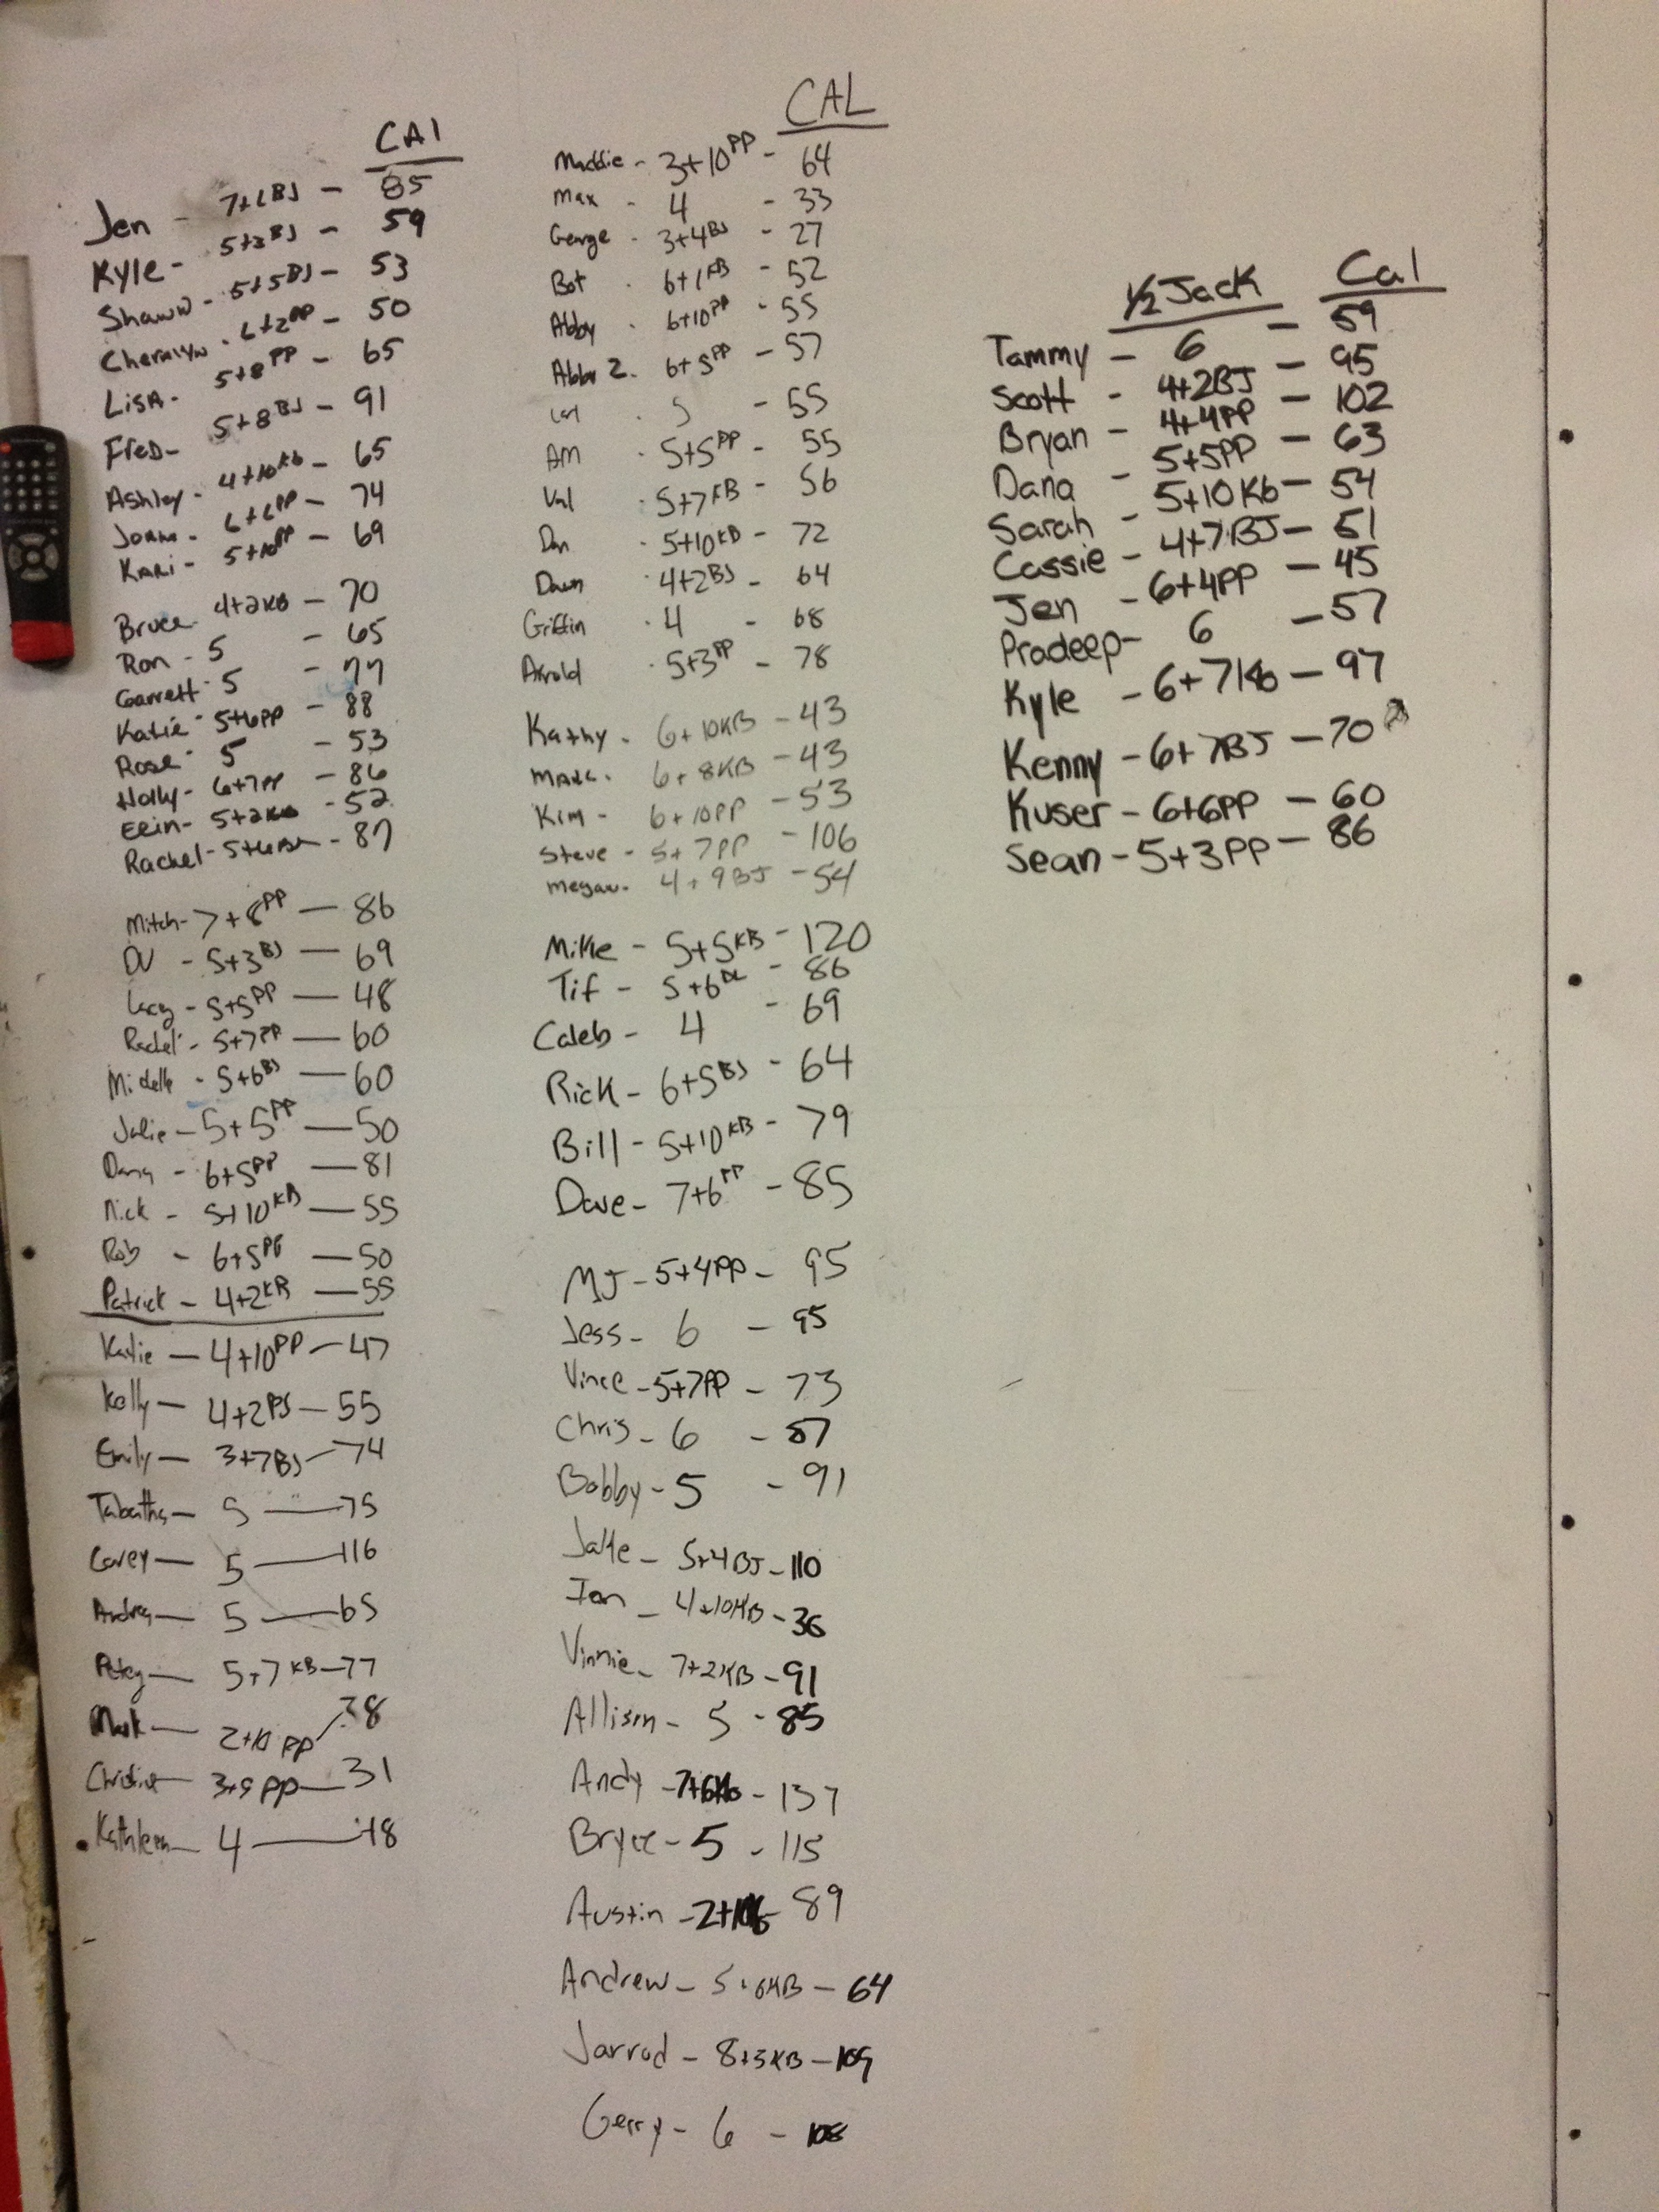 CAl
Jen - 7+6BJ - 85
Kyle - 5+3BJ - 59
Shawn - 5+5BJ - 53
Cheralyn - 6+2PP - 50
LisA - 5+8PP - 65
FreD - 5+8BJ - 91
Ashley - 4+10Kb - 65
6+6PP - 74
KARi - 5+10PP - 69
Bruce - 4+2KB - 70
Ron - 5 - 65
Garrett - 5 - 77
Katie - 5+6PP - 88
Rose - 5 - 53
Holly - 6+7PP - 86
Erin - 5+2KB - 52
Rachel - 5+6 - 87
Mitch - 7+8PP - 86
DV - 5+3BJ - 69
Lucy - 5+5PP - 48
Rachel - 5+7PP - 60
Michelle - 5+6BJ - 60
Julie - 5+5PP - 50
Dana - 6+5PP - 81
Nick - 5+10KB - 55
Rob - 6+5PP - 50
Patrick - 4+2KB - 55
Katie - 4+10PP - 47
Kelly - 4+2BJ - 55
Emily - 3+7BJ - 74
Tabatha - 5 - 75
Corey - 5 - 116
Andrea - 5 - 65
5+7KB - 77
Mark - 2+10PP - 38
Christine - 3+9PP - 31
Kathleen - 4 - 48
CAL
Maddie - 3+10PP - 64
Max - 4 - 33
George - 3+4BJ - 27
Bot - 6+1KB - 52
Abby - 6+10PP - 55
Abby 2 - 6+5PP - 57
5 - 55
AM - 5+5PP - 55
Val - 5+7KB - 56
Dan - 5+10KB - 72
Dawn - 4+2BJ - 64
Griffin - 4 - 68
Arnold - 5+3PP - 78
Kathy - 6+10KB - 43
MARC - 6+8KB - 43
Kim - 6+10PP - 53
Steve - 5+7PP - 106
Megan - 4+9BJ - 54
Mike - 5+5KB - 120
Tif - 5+6 - 86
Caleb - 4 - 69
Rick - 6+5BJ - 64
Bill - 5+10KB - 79
Dave - 7+6PP - 85
MJ - 5+4PP - 95
Jess - 6 - 95
Vince - 5+7PP - 73
Chris - 6 - 87
Bobby - 5 - 91
Jake - 5+4BJ - 110
Ian - 4+10KB - 36
Vinnie - 7+2KB - 91
Allison - 5 - 85
Andy - 7+6Kb - 137
Bryce - 5 - 115
Austin - 89
Andrew - 5+6KB - 64
Jarrod - 8+3KB - 109
Gerry - 6 - 108
1/2 Jack Cal
Tammy - 6 - 59
Scott - 4+2BJ - 95
Bryan - 4+4PP - 102
Dana - 5+5PP - 63
Sarah - 5+10Kb - 54
Cassie - 4+7BJ - 51
Jen - 6+4PP - 45
Pradeep - 6 - 57
Kyle - 6+7Kb - 97
Kenny - 6+7BJ - 70
Kuser - 6+6PP - 60
Sean - 5+3PP - 86